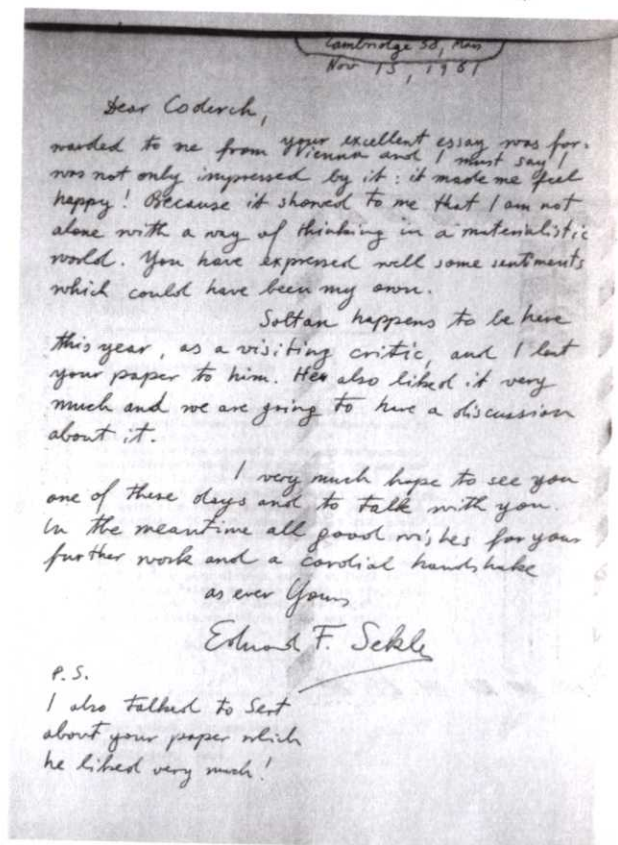 Cambridge 38, Mass
Nov 15, 1961
Dear Coderch,
your excellent essay was for-
warded to me from Vienna and I must say I
was not only impressed by it: it made me feel
happy! Because it showed to me that I am not
alone with a way of thinking in a materialistic
world. You have expressed well some sentiments
which could have been my own.
Soltan happens to be here
this year, as a visiting critic, and I lent
your paper to him. He also liked it very
much and we are going to have a discussion
about it.
I very much hope to see you
one of these days and to talk with you.
In the meantime all good wishes for your
further work and a cordial handshake
as ever Yours
Eduard F. Sekler
P.S.
I also talked to Sert
about your paper which
he liked very much!